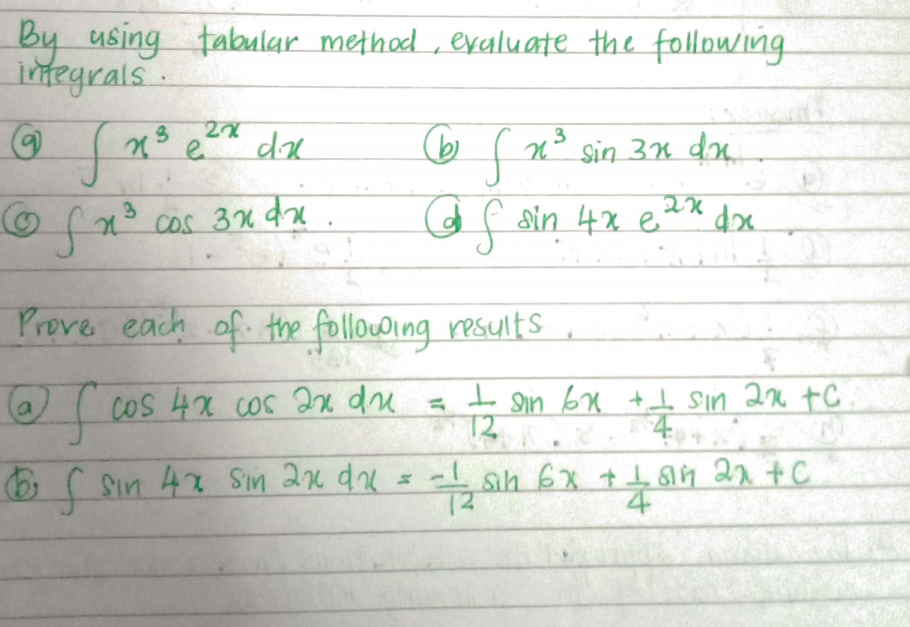 By using tabular method, evaluate the following
integrals.
(a) ∫ x³ e^{2x} dx (b) ∫ x³ sin 3x dx.
(c) ∫ x³ cos 3x dx. (d) ∫ sin 4x e^{2x} dx.
Prove each of the following results.
(a) ∫ cos 4x cos 2x dx = 1/12 sin 6x + 1/4 sin 2x + C.
(b) ∫ sin 4x sin 2x dx = -1/12 sin 6x + 1/4 sin 2x + C